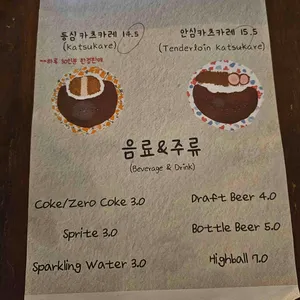 등심카츠카레 14.5
(katsukare)
안심카츠카레 15.5
(Tenderloin katsukare)
음료&주류
(Beverage & Drink)
Coke/Zero Coke 3.0
Draft Beer 4.0
Sprite 3.0
Bottle Beer 5.0
Sparkling Water 3.0
Highball 7.0